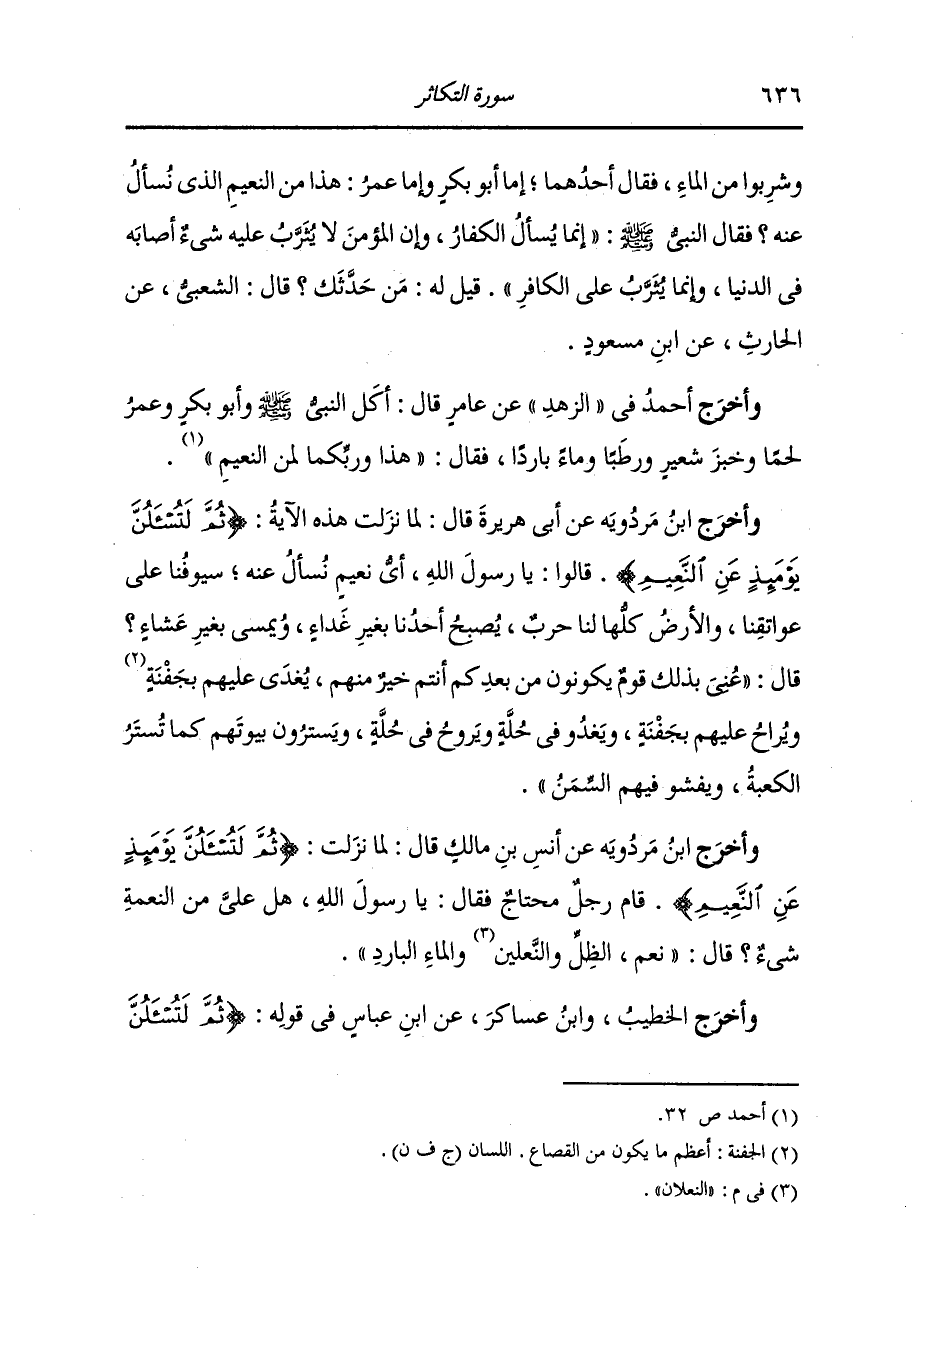 ٦٣٦
سورة التكاثر
وشرِبوا من الماءِ ، فقال أحدُهما ؛ إما أبو بكرٍ وإما عمرُ : هذا من النعيمِ الذى نُسألُ
عنه ؟ فقال النبىُّ ﷺ : « إنما يُسألُ الكفارُ ، وإن المؤمنَ لا يُثَرَّبُ عليه شىءٌ أصابَه
فى الدنيا ، وإنما يُثَرَّبُ على الكافرِ » . قيل له : مَن حَدَّثَك ؟ قال : الشعبىُّ ، عن
الحارثِ ، عن ابنِ مسعودٍ .
وأخرَج أحمدُ فى « الزهدِ » عن عامرٍ قال : أكَل النبىُّ ﷺ وأبو بكرٍ وعمرُ
لحمًا وخبزَ شعيرٍ ورطَبًا وماءً باردًا ، فقال : « هذا وربِّكما لمن النعيمِ »(١) .
وأخرَج ابنُ مَردُويَه عن أبى هريرةَ قال : لما نزَلت هذه الآيةُ : ﴿ثُمَّ لَتُسْـَٔلُنَّ
يَوْمَىِٕذٍ عَنِ ٱلنَّعِيمِ﴾ . قالوا : يا رسولَ اللهِ ، أىُّ نعيمٍ نُسألُ عنه ؛ سيوفُنا على
عواتقِنا ، والأرضُ كلُّها لنا حربٌ ، يُصبِحُ أحدُنا بغيرِ غَداءٍ ، ويُمسى بغيرِ عَشاءٍ ؟
قال : «عُنِىَ بذلك قومٌ يكونون من بعدِكم أنتم خيرٌ منهم ، يُغدَى عليهم بجَفْنَةٍ(٢)
ويُراحُ عليهم بجَفْنَةٍ ، ويَغدُو فى حُلَّةٍ ويَروحُ فى حُلَّةٍ ، ويَستُرُون بيوتَهم كما تُستَرُ
الكعبةُ ، ويفشو فيهم السِّمَنُ » .
وأخرَج ابنُ مَردُويَه عن أنسِ بنِ مالكٍ قال : لما نزَلت : ﴿ثُمَّ لَتُسْـَٔلُنَّ يَوْمَىِٕذٍ
عَنِ ٱلنَّعِيمِ﴾ . قام رجلٌ محتاجٌ فقال : يا رسولَ اللهِ ، هل علىَّ من النعمةِ
شىءٌ ؟ قال : « نعم ، الظِلِّ والنَّعلين(٣) والماءِ الباردِ » .
وأخرَج الخطيبُ ، وابنُ عساكرَ ، عن ابنِ عباسٍ فى قولِه : ﴿ثُمَّ لَتُسْـَٔلُنَّ
(١) أحمد ص ٣٢.
(٢) الجفنة : أعظم ما يكون من القصاع . اللسان (ج ف ن) .
(٣) فى م : «النعلان» .